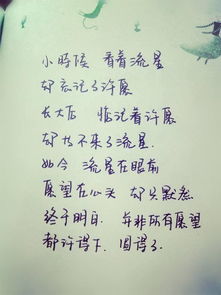 小时候 看着流星
却忘记了许愿
长大后 惦记着许愿
却也不来了流星
如今 流星在眼前
愿望在心头 却只默然
终于明白 并非所有愿望
都许得下 圆得了